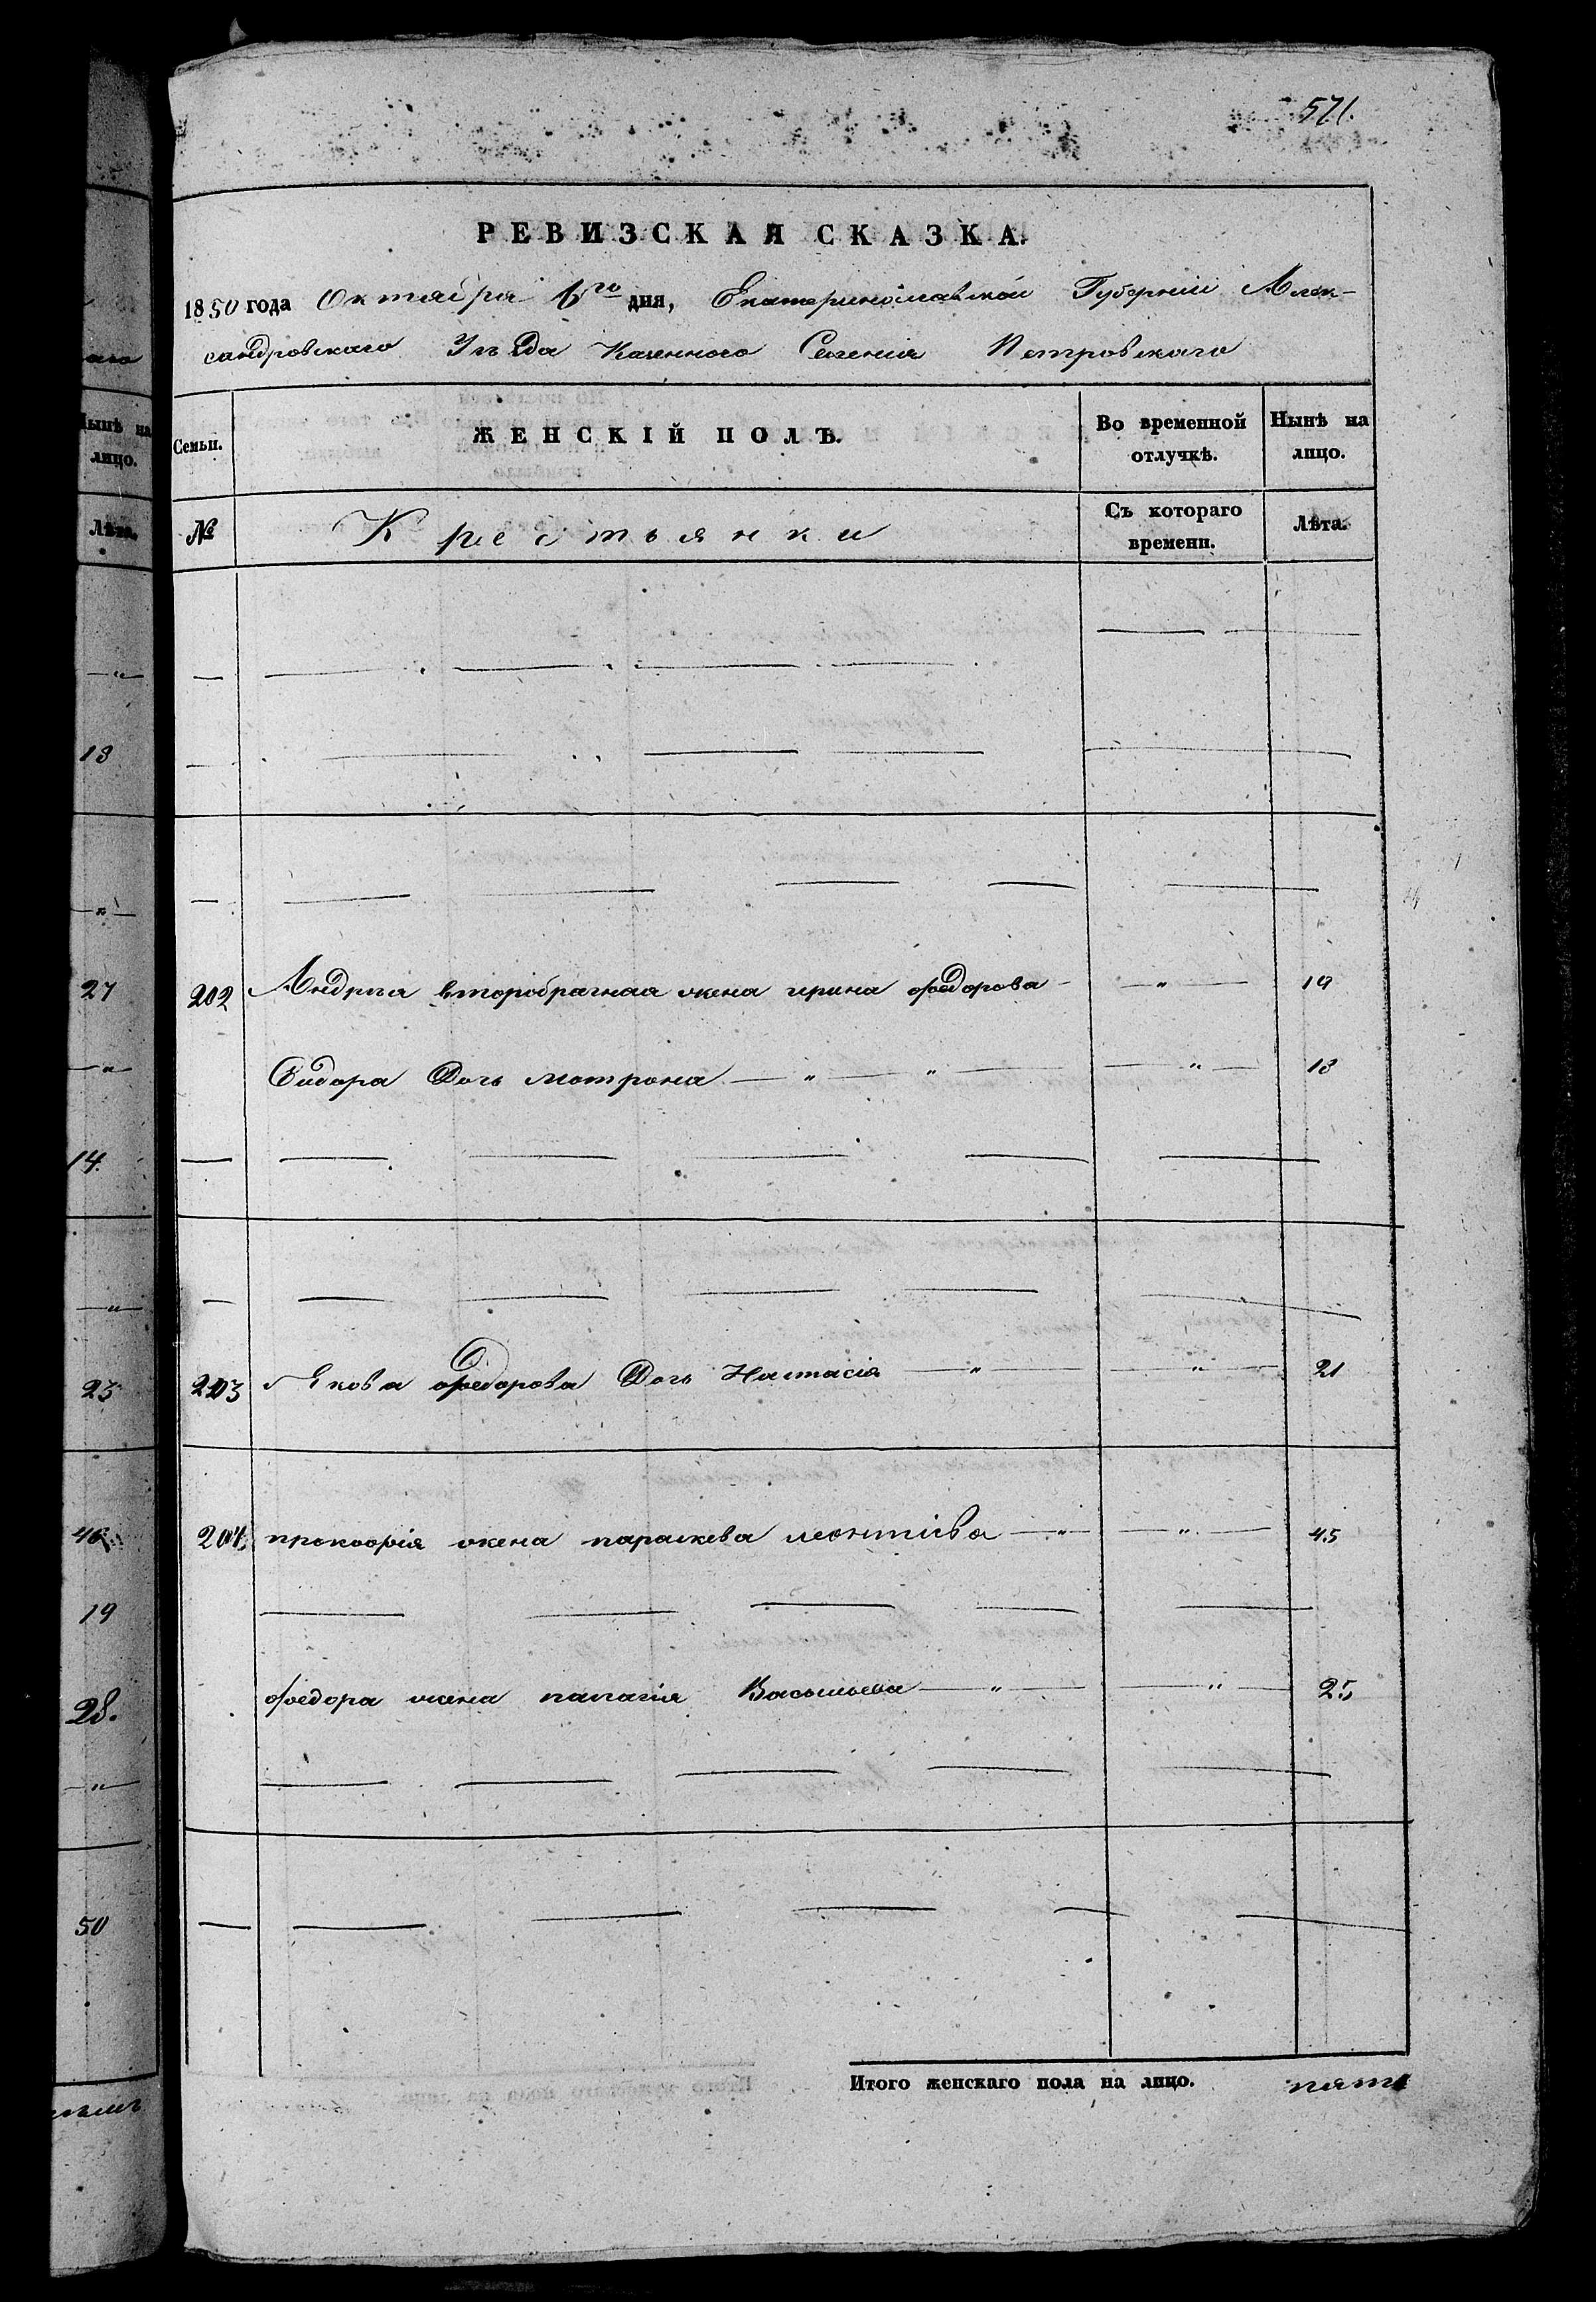 571.
РЕВИЗСКАЯ СКАЗКА.
1850 года Октября 6го дня, Екатеринославской Губерніи Алек-
сандровскаго Уѣзда Казенного Селенія Петровскаго
Семьи. ЖЕНСКІЙ ПОЛЪ. Во временной отлучкѣ. Нынѣ на лицо.
№ Крестьянки Съ котораго времени. Лѣта.
202 Андрѣя второбрачная жена ирина федорова — " — 19
Сидора Дочь мотрона — " — " — — " — 18
203 Якова федорова Дочь Настасія — " — — " — 21
204 прокофія жена параскева леонтіева — " — — " — 45
федора жена палагія Васыльева — " — — " — 25
Итого женскаго пола на лицо. пять
аго
Нынѣ на
лицо.
Лѣта.
— " —
18
— " —
27
— " —
14.
— " —
23
46
19
28.
— " —
50